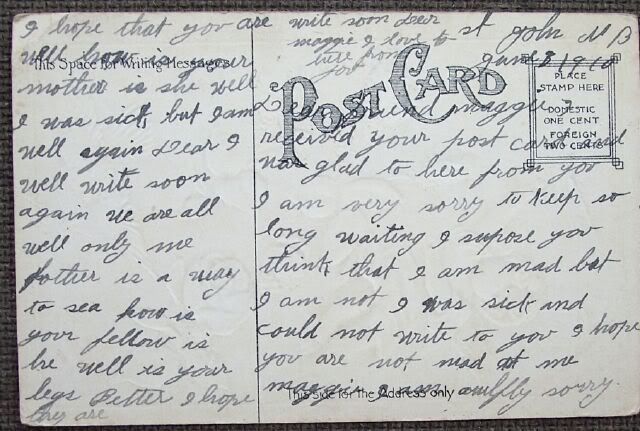 St John N B
June 8 1910
Dear friend maggie I
received your post card and
was glad to here from you
I am very sorry to keep so
long waiting I supose you
think that I am mad but
I am not I was sick and
could not write to you I hope
you are not mad at me
maggie I am awflly sorry.
I hope that you are
well how is your
mother is she well
I was sick but I am
well again Dear I
well write soon
again we are all
well only me
father is a way
to sea how is
your fellow is
he well is your
legs better I hope
they are
write soon Dear
maggie I love to
here from
you
This Space for Writing Messages
POST CARD
PLACE
STAMP HERE
DOMESTIC
ONE CENT
FOREIGN
TWO CENTS
This side for the Address only